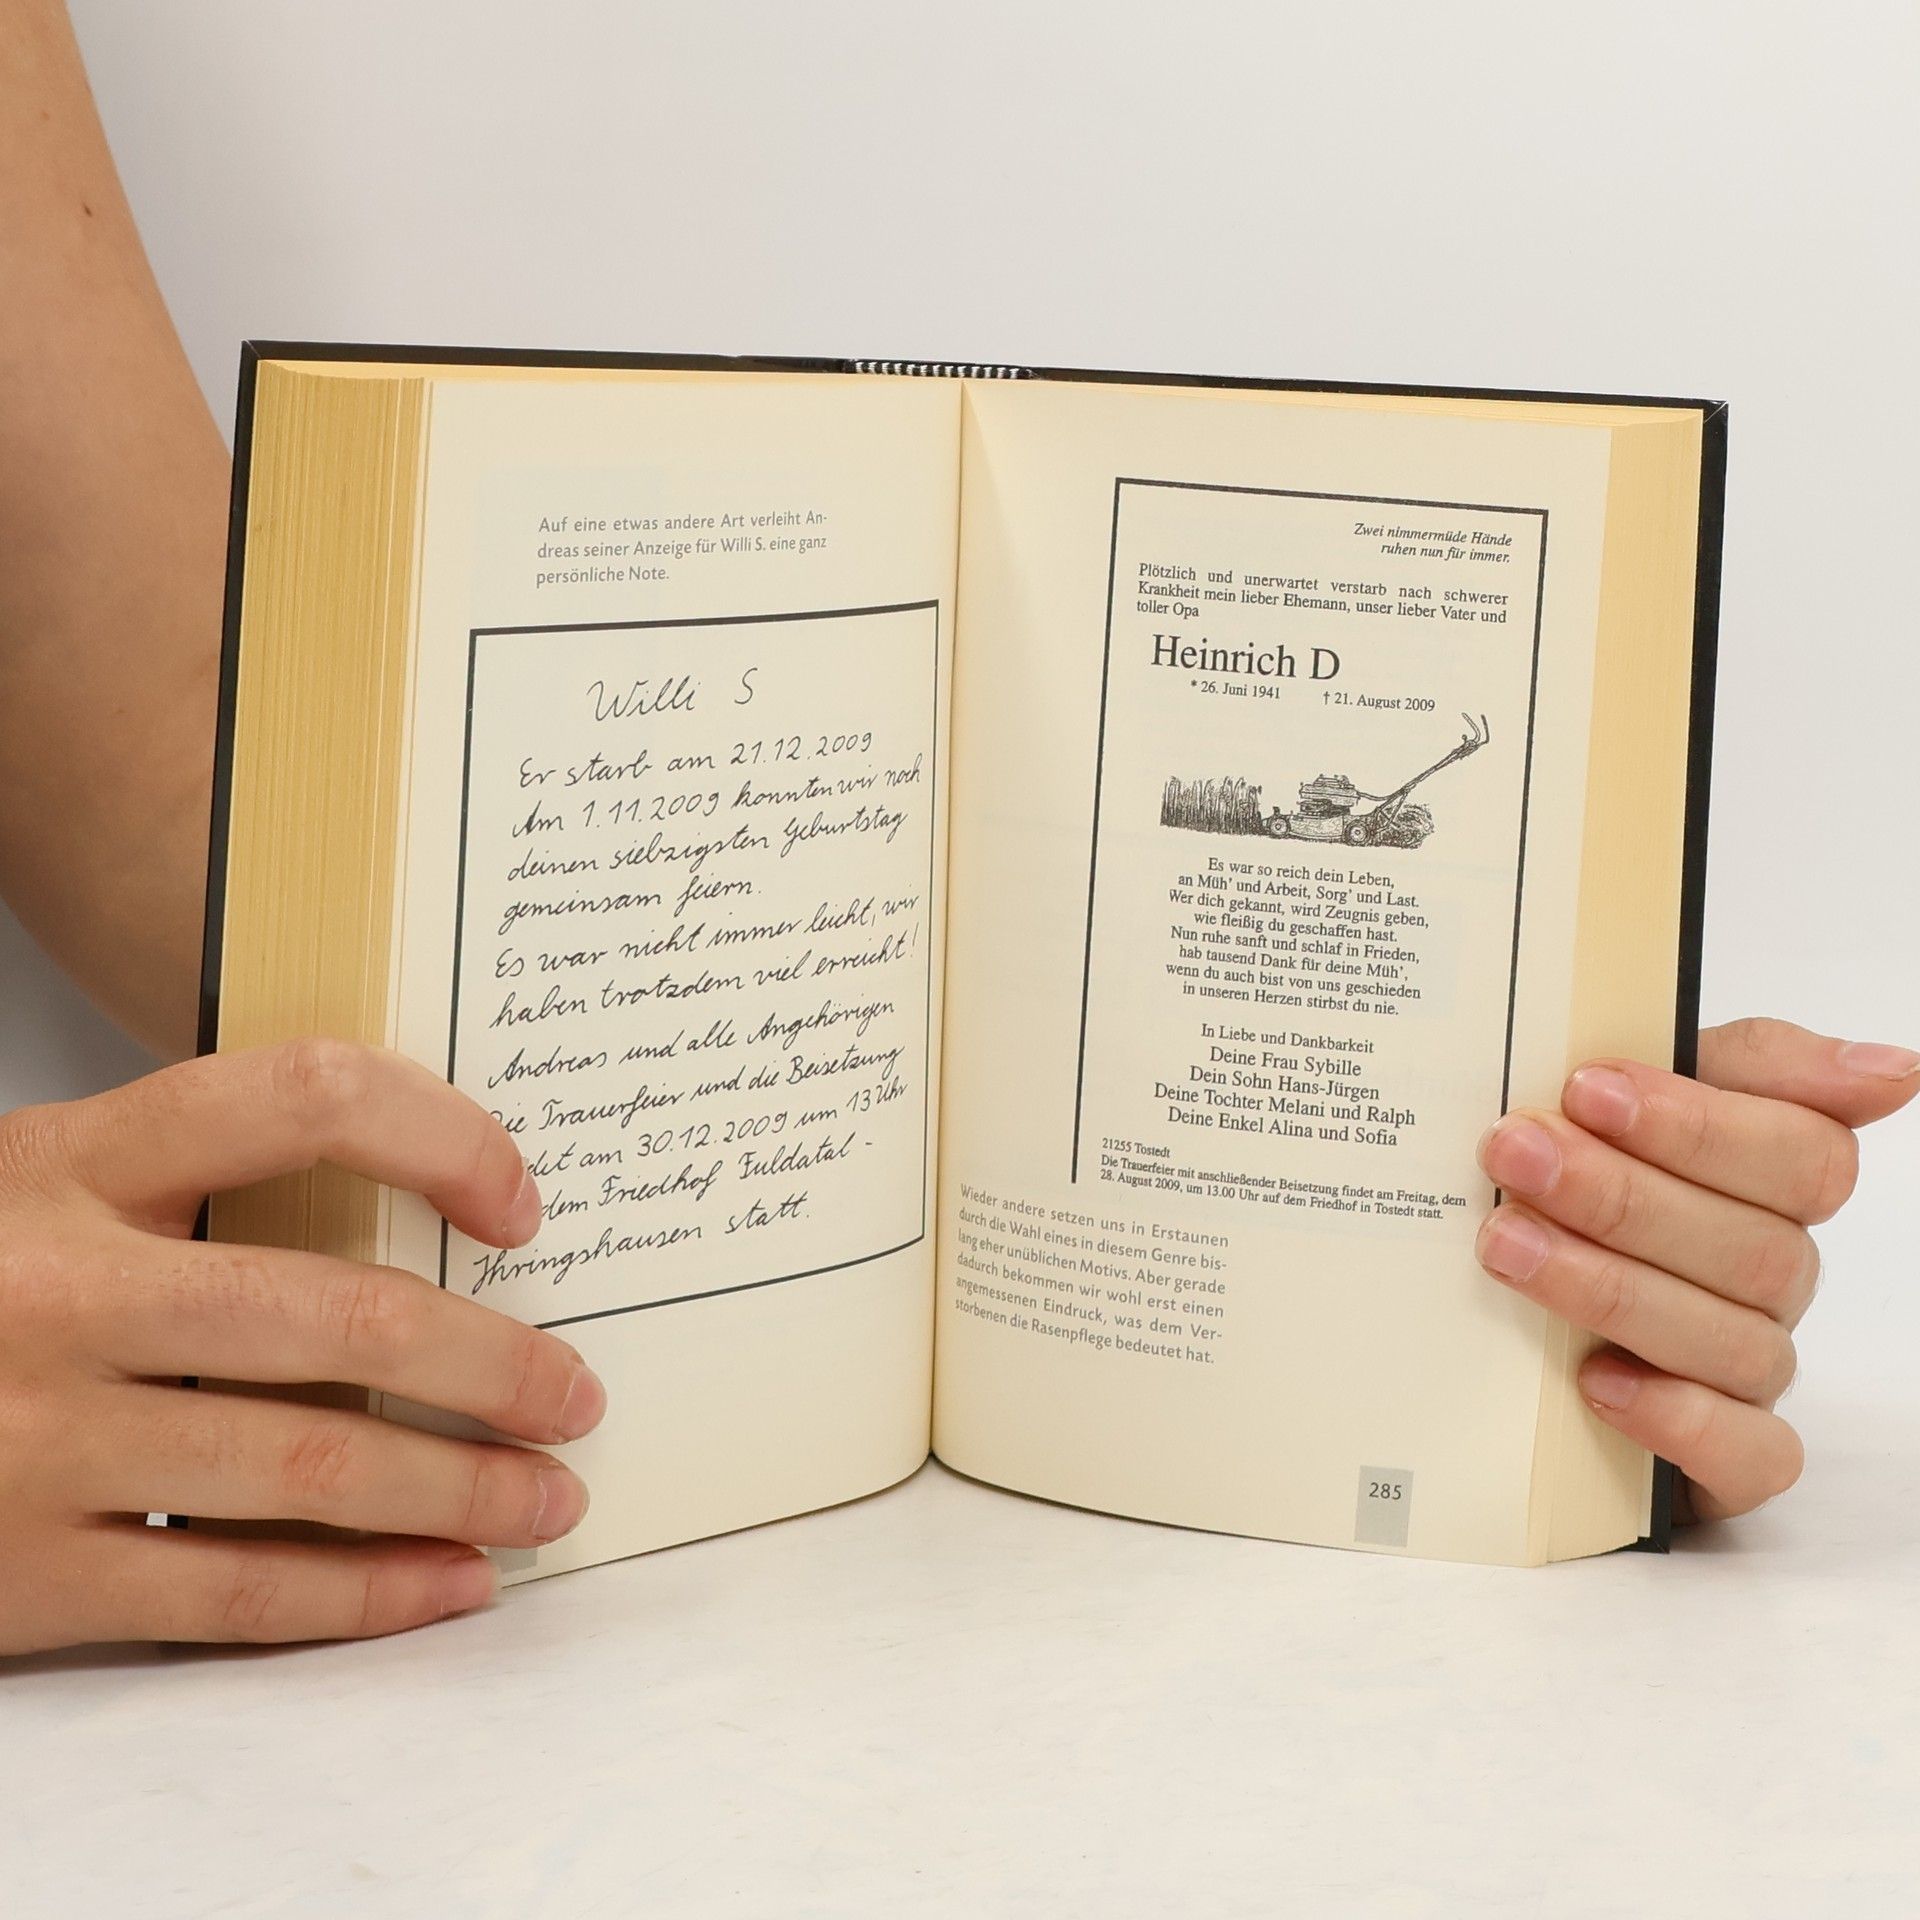 Auf eine etwas andere Art verleiht An-
dreas seiner Anzeige für Willi S. eine ganz
persönliche Note.
Willi S
Er starb am 21.12.2009
Am 1.11.2009 konnten wir noch
deinen siebzigsten Geburtstag
gemeinsam feiern.
Es war nicht immer leicht, wir
haben trotzdem viel erreicht!
Andreas und alle Angehörigen
Die Trauerfeier und die Beisetzung
am 30.12.2009 um 13 Uhr
dem Friedhof Fuldatal -
Ihringshausen statt.
Zwei nimmermüde Hände
ruhen nun für immer.
Plötzlich und unerwartet verstarb nach schwerer
Krankheit mein lieber Ehemann, unser lieber Vater und
toller Opa
Heinrich D
* 26. Juni 1941 † 21. August 2009
Es war so reich dein Leben,
an Müh' und Arbeit, Sorg' und Last.
Wer dich gekannt, wird Zeugnis geben,
wie fleißig du geschaffen hast.
Nun ruhe sanft und schlaf in Frieden,
hab tausend Dank für deine Müh',
wenn du auch bist von uns geschieden
in unseren Herzen stirbst du nie.
In Liebe und Dankbarkeit
Deine Frau Sybille
Dein Sohn Hans-Jürgen
Deine Tochter Melani und Ralph
Deine Enkel Alina und Sofia
21255 Tostedt
Die Trauerfeier mit anschließender Beisetzung findet am Freitag, dem
28. August 2009, um 13.00 Uhr auf dem Friedhof in Tostedt statt.
Wieder andere setzen uns in Erstaunen
durch die Wahl eines in diesem Genre bis-
lang eher unüblichen Motivs. Aber gerade
dadurch bekommen wir wohl erst einen
angemessenen Eindruck, was dem Ver-
storbenen die Rasenpflege bedeutet hat.
285